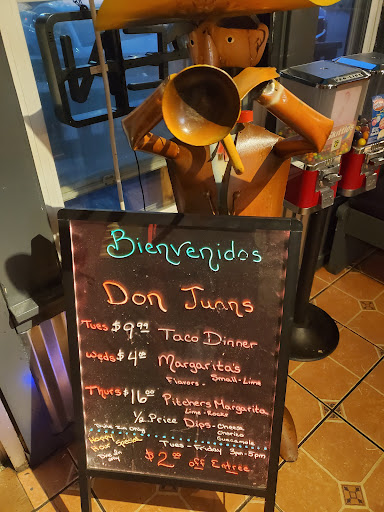 Bienvenidos
Don Juans
Tues $9.99 Taco Dinner
Weds $4.00 Margarita's
Flavors - Small - Lime
Thurs $16.00 Pitchers Margarita
Lime - Rocks
1/2 Price Dips - Cheese
Chorizo
Guacamole
Dine In Only
Happy Hour Special Tues - Friday 3pm-5pm
Dine In Only $2.00 off Entree